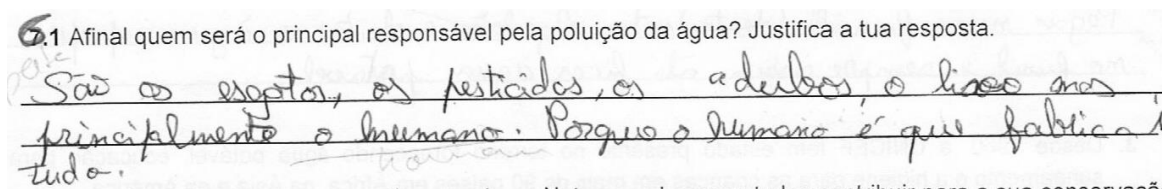 7.1 Afinal quem será o principal responsável pela poluição da água? Justifica a tua resposta.
São os esgotos, os pesticidas, os adubos, o lixo mas
principalmente o humano. Porque o humano é que fablica
tudo.